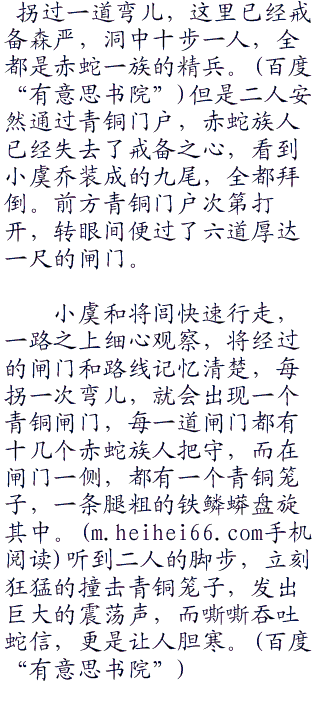 拐过一道弯儿，这里已经戒
备森严，洞中十步一人，全
都是赤蛇一族的精兵。(百度
“有意思书院”)但是二人安
然通过青铜门户，赤蛇族人
已经失去了戒备之心，看到
小虞乔装成的九尾，全都拜
倒。前方青铜门户次第打
开，转眼间便过了六道厚达
一尺的闸门。
小虞和将闾快速行走，
一路之上细心观察，将经过
的闸门和路线记忆清楚，每
拐一次弯儿，就会出现一个
青铜闸门，每一道闸门都有
十几个赤蛇族人把守，而在
闸门一侧，都有一个青铜笼
子，一条腿粗的铁鳞蟒盘旋
其中。(m.heihei66.com手机
阅读)听到二人的脚步，立刻
狂猛的撞击青铜笼子，发出
巨大的震荡声，而嘶嘶吞吐
蛇信，更是让人胆寒。(百度
“有意思书院”)